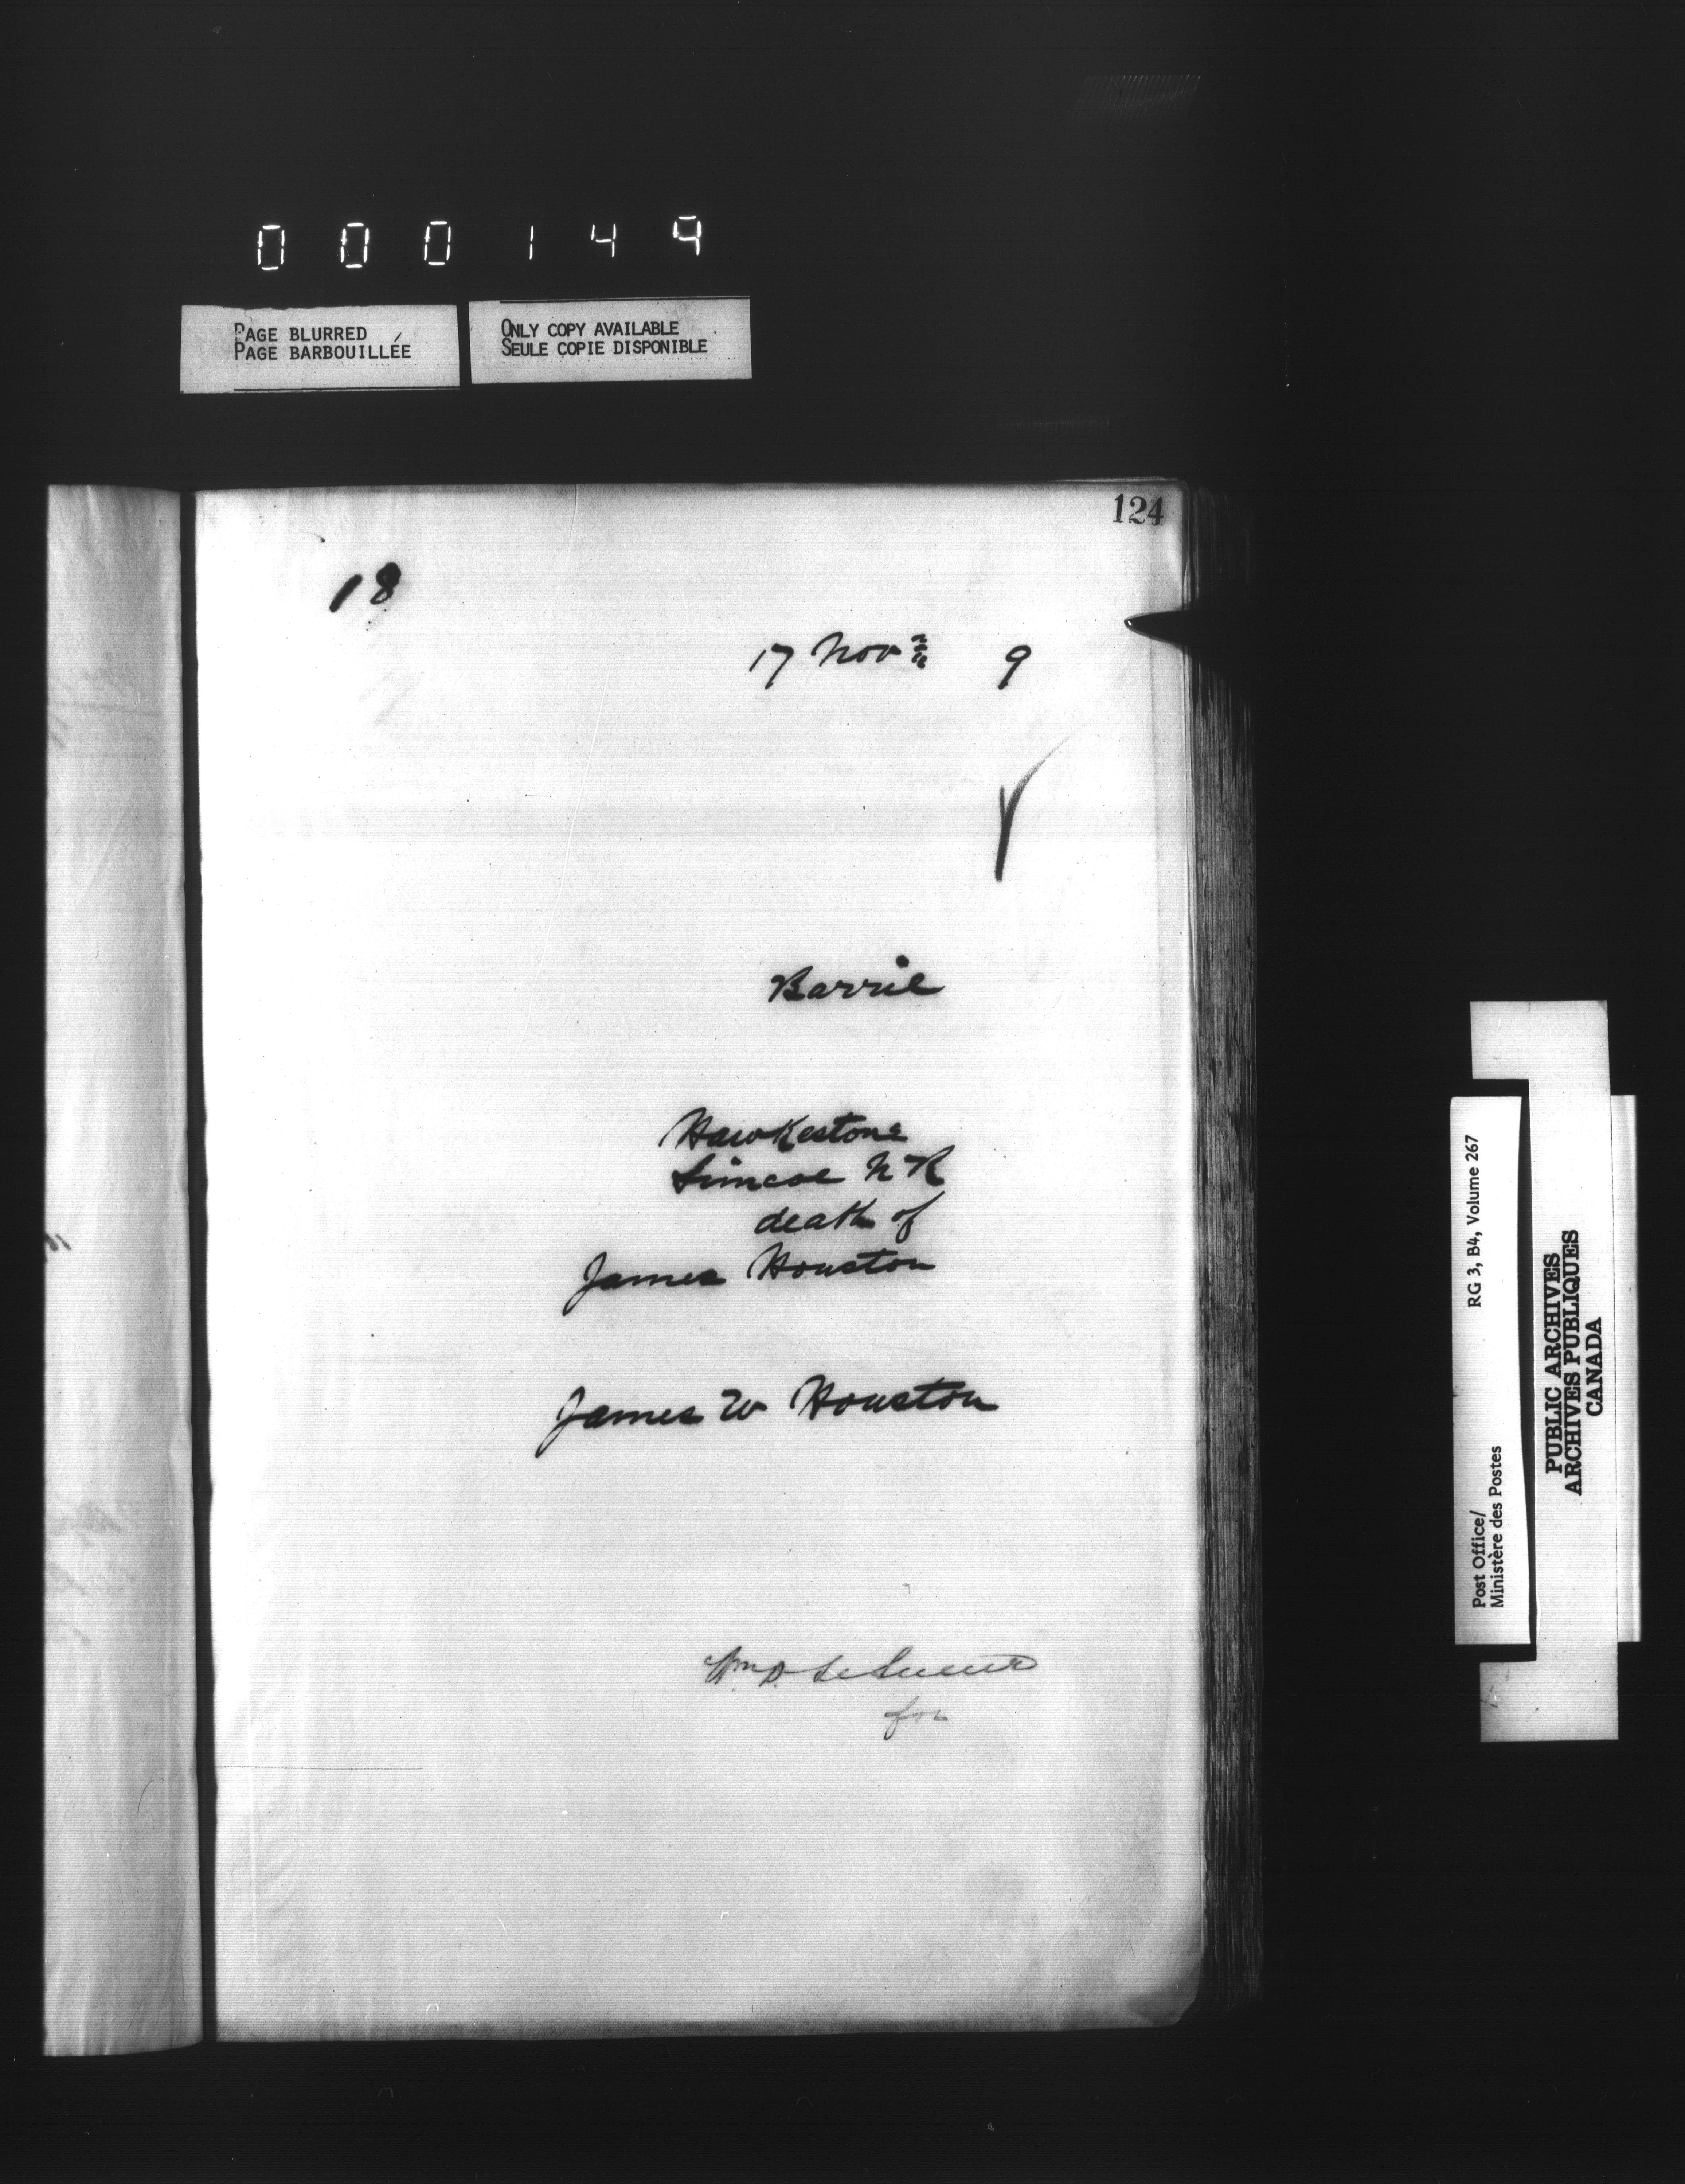 000149
PAGE BLURRED
PAGE BARBOUILLÉE
ONLY COPY AVAILABLE
SEULE COPIE DISPONIBLE
124
18
17 Nov 9
Barrie
Hawkestone
Simcoe N R
death of
James Houston
James W Houston
Wm. D. LeSueur
for
Post Office/
Ministère des Postes
RG 3, B4, Volume 267
PUBLIC ARCHIVES
ARCHIVES PUBLIQUES
CANADA